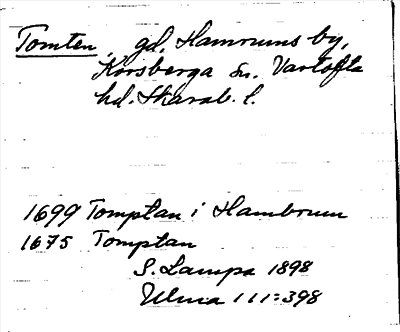 Tomten, gd, Hamrums by,
Korsberga sn. Vartofta
hd. Skarab. l.
1699 Tomptan i Hambrum
1675 Tomptan
S. Lampa 1898
Ulma 111:398